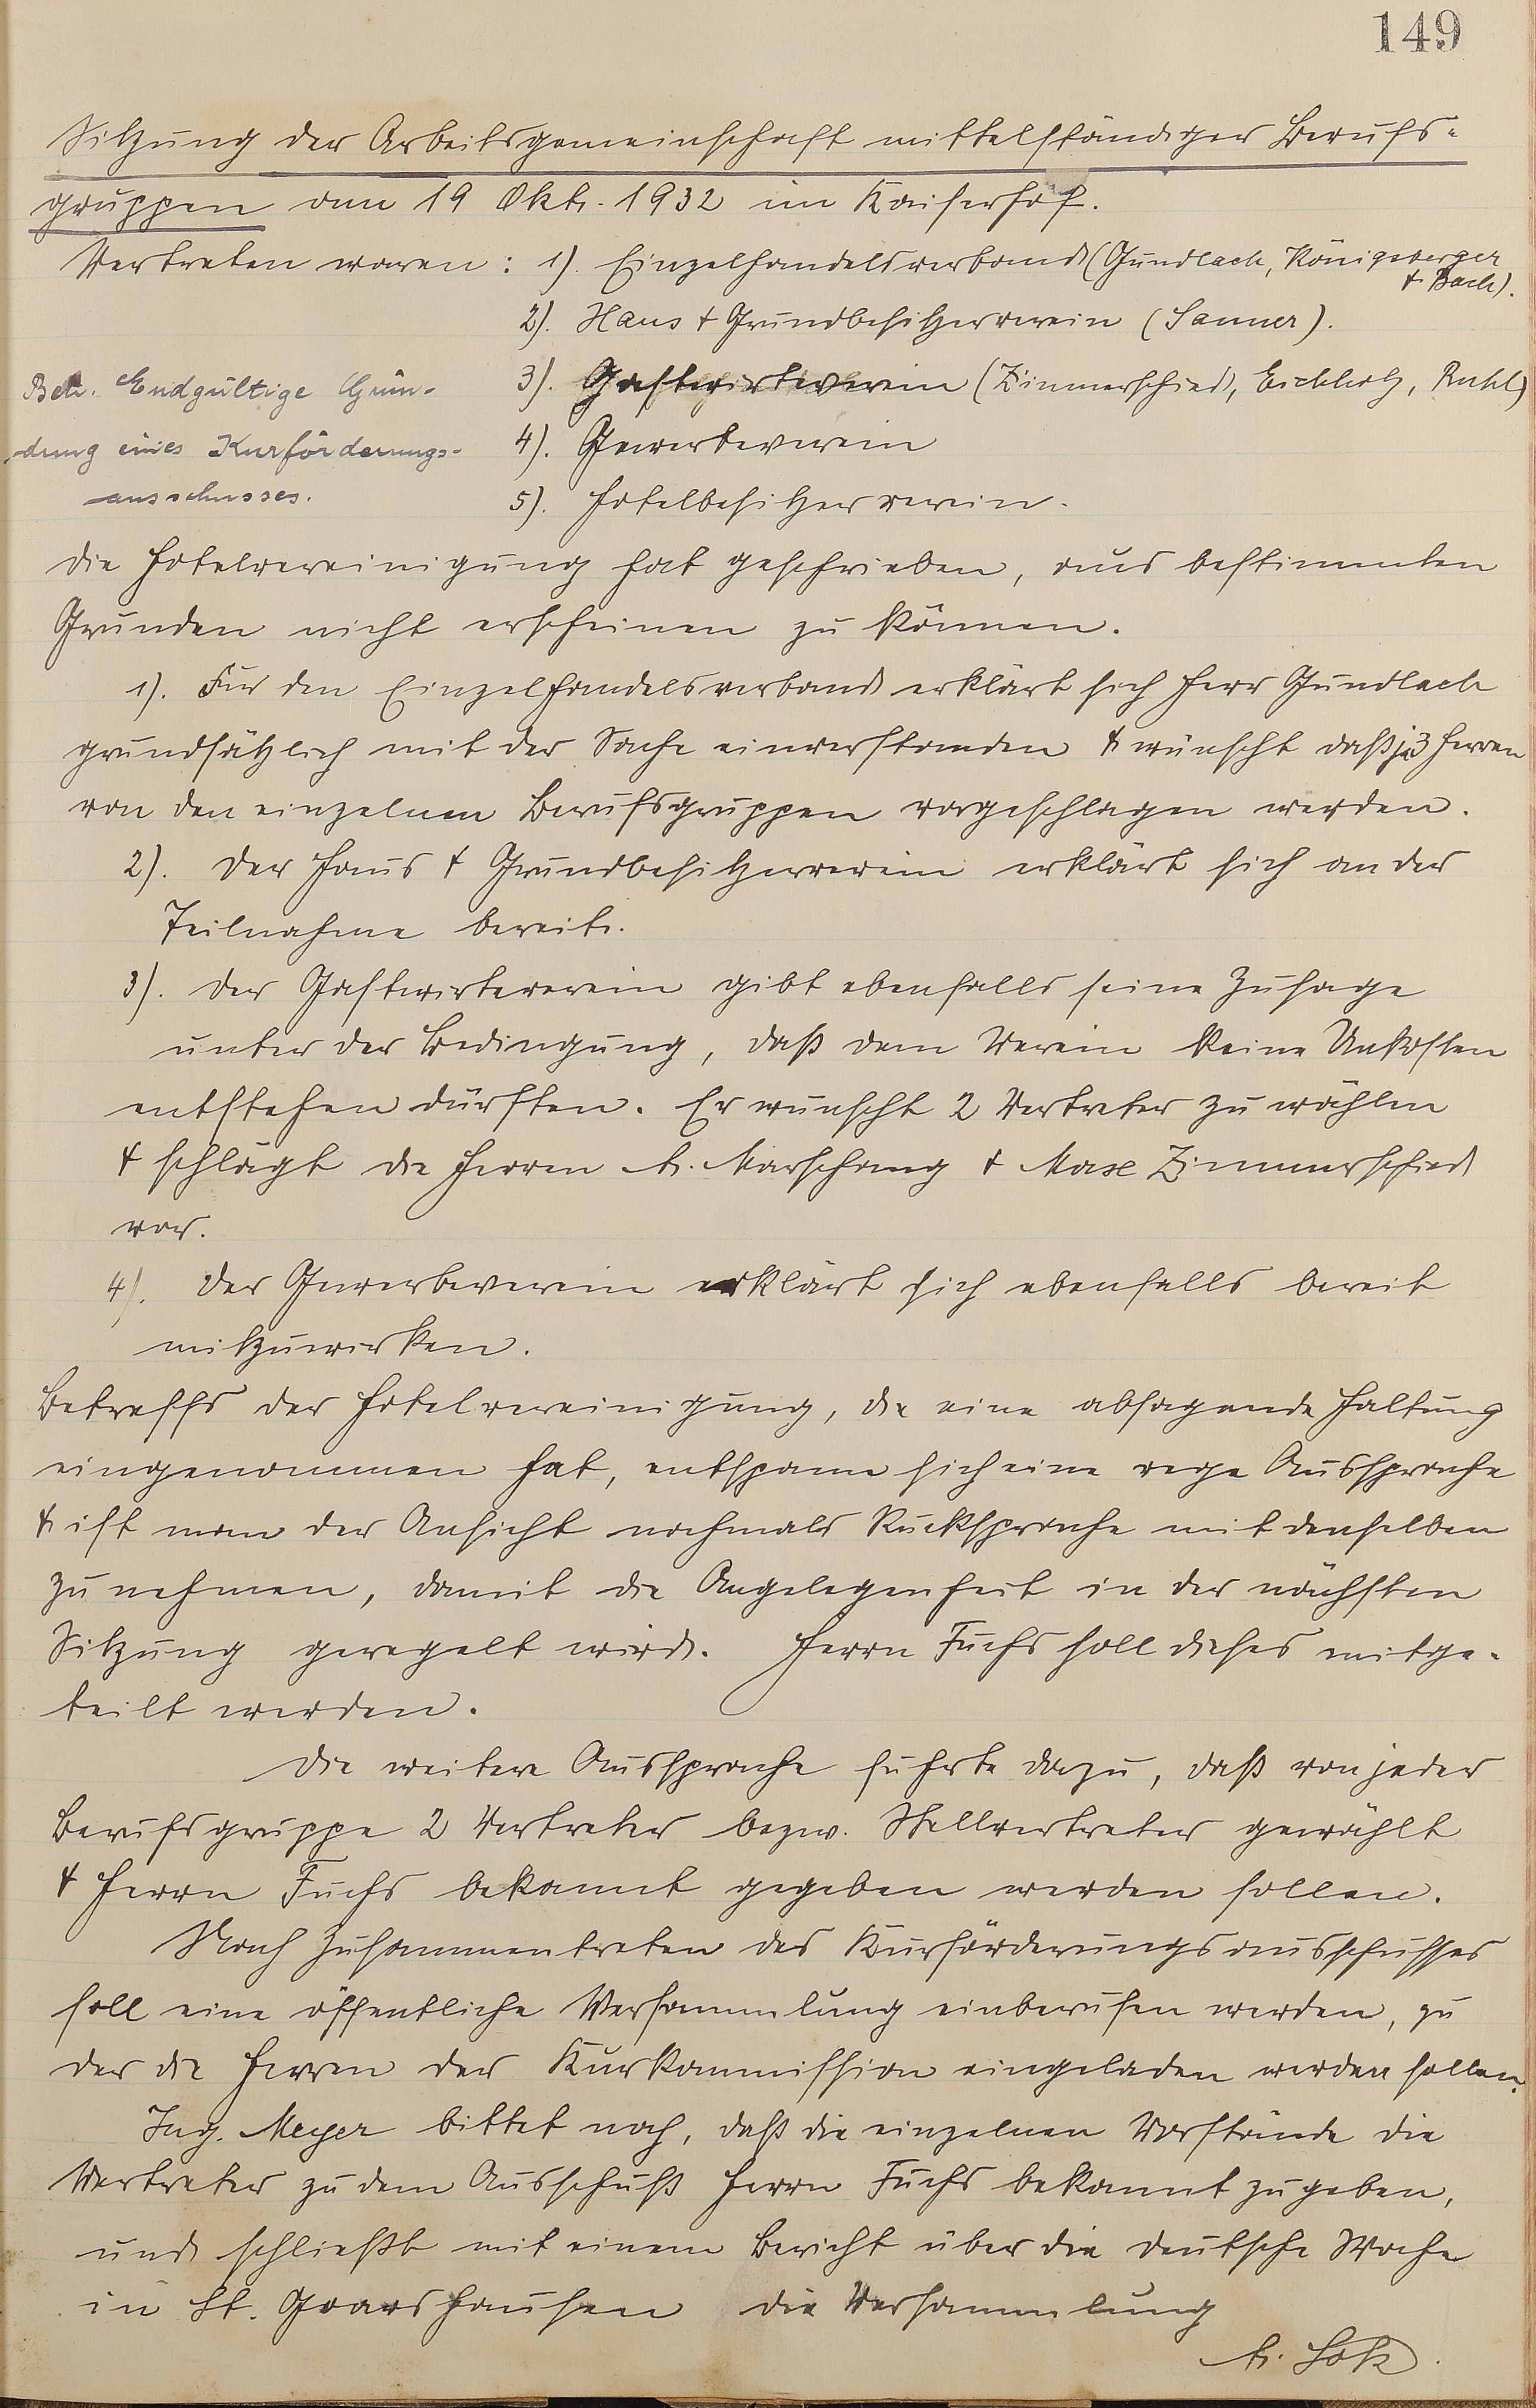 149
Sitzung der Arbeitsgemeinschaft mittelständiger Berufs-
gruppen am 19 Okt. 1932 im Kaiserhof.
Vertreten waren: 1). Einzelhandelsverband (Gundlach, Königsberger
& Bach).
2). Haus & Grundbesitzerverein (Sanner).
Betr. Endgültige Grün-
dung eines Kurförderungs-
ausschusses.
3). Gastwirteverein (Zimmerschied, Eichholz, Ruhl)
4). Gewerbeverein
5). Hotelbesitzerverein.
Die Hotelvereinigung hat geschrieben, aus bestimmten
Gründen nicht erscheinen zu können.
1). Für den Einzelhandelsverband erklärt sich Herr Gundlach
grundsätzlich mit der Sache einverstanden & wünscht daß je 3 Herren
von den einzelnen Berufsgruppen vorgeschlagen werden.
2). Der Haus & Grundbesitzerverein erklärt sich an der
Teilnahme bereit.
3). Der Gastwirteverein gibt ebenfalls seine Zusage
unter der Bedingung, daß dem Verein keine Unkosten
entstehen dürften. Er wünscht 2 Vertreter zu wählen
& schlägt die Herren A. Marschang & Max Zimmerschied
vor.
4). Der Gewerbeverein erklärt sich ebenfalls bereit
mitzuwirken.
Betreffs der Hotelvereinigung, die eine absagende Haltung
eingenommen hat, entspann sich eine rege Aussprache
& ist man der Ansicht nochmals Rücksprache mit denselben
zu nehmen, damit die Angelegenheit in der nächsten
Sitzung geregelt wird. Herrn Fuchs soll dieses mitge-
teilt werden.
Die weitere Aussprache führte dazu, daß von jeder
Berufsgruppe 2 Vertreter bezw. Stellvertreter gewählt
& Herrn Fuchs bekannt gegeben werden sollen.
Nach Zusammentreten des Kurförderungsausschusses
soll eine öffentliche Versammlung einberufen werden, zu
der die Herren der Kurkommission eingeladen werden sollen.
Ing. Meyer bittet noch, daß die einzelnen Vorstände die
Vertreter zu dem Ausschuß Herrn Fuchs bekannt zu geben,
und schließt mit einem Bericht über die deutsche Woche
in St. Goarshausen die Versammlung